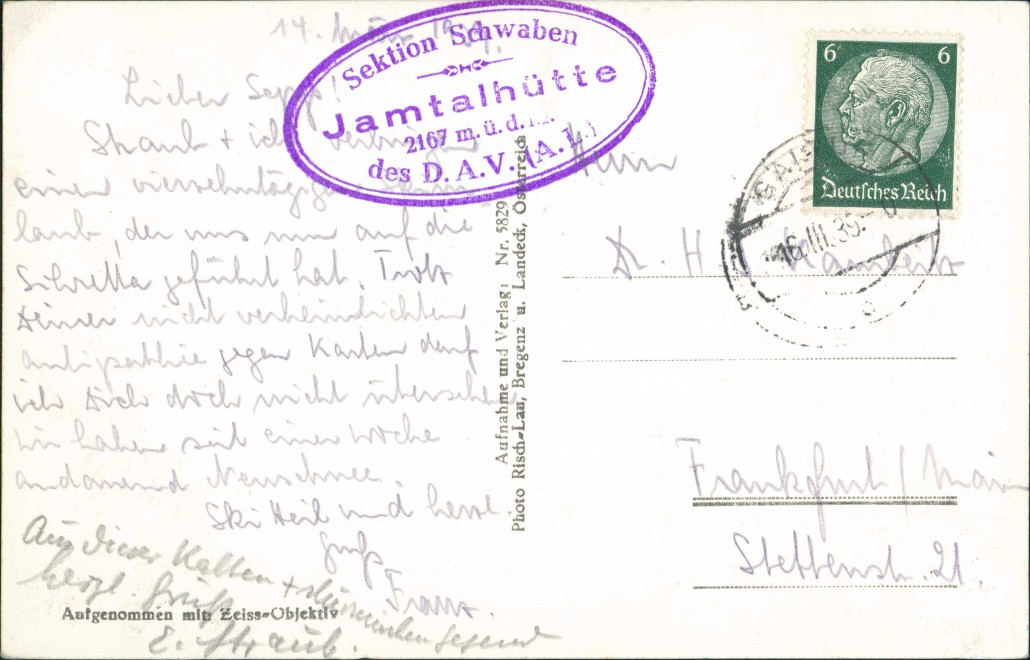 14. März
Sektion Schwaben
Jamtalhütte
2167 m. ü. d. M.
des D. A. V. (A. V.)
Lieber Sepp!
Straub + ich verbringen
einen vierzehntägigen
laub, der uns nun auf die
Silvretta geführt hat. Trotz
Deiner nicht verheimlichten
Antipathie gegen Karten darf
ich Dich doch nicht übersehen
Wir haben seit einer Woche
andauernd Neuschnee.
Ski Heil und herzl.
Gruß
Franz.
Aus dieser kalten + stürmischen Gegend
herzl. Grüße
E. Straub.
Aufgenommen mit Zeiss-Objektiv
Aufnahme und Verlag: Nr. 5829
Photo Risch-Lau, Bregenz u. Landeck, Österreich
6 6
Deutsches Reich
16.III.35.
Herrn
Dr. H.
Frankfurt/Main
Stettenstr. 21.